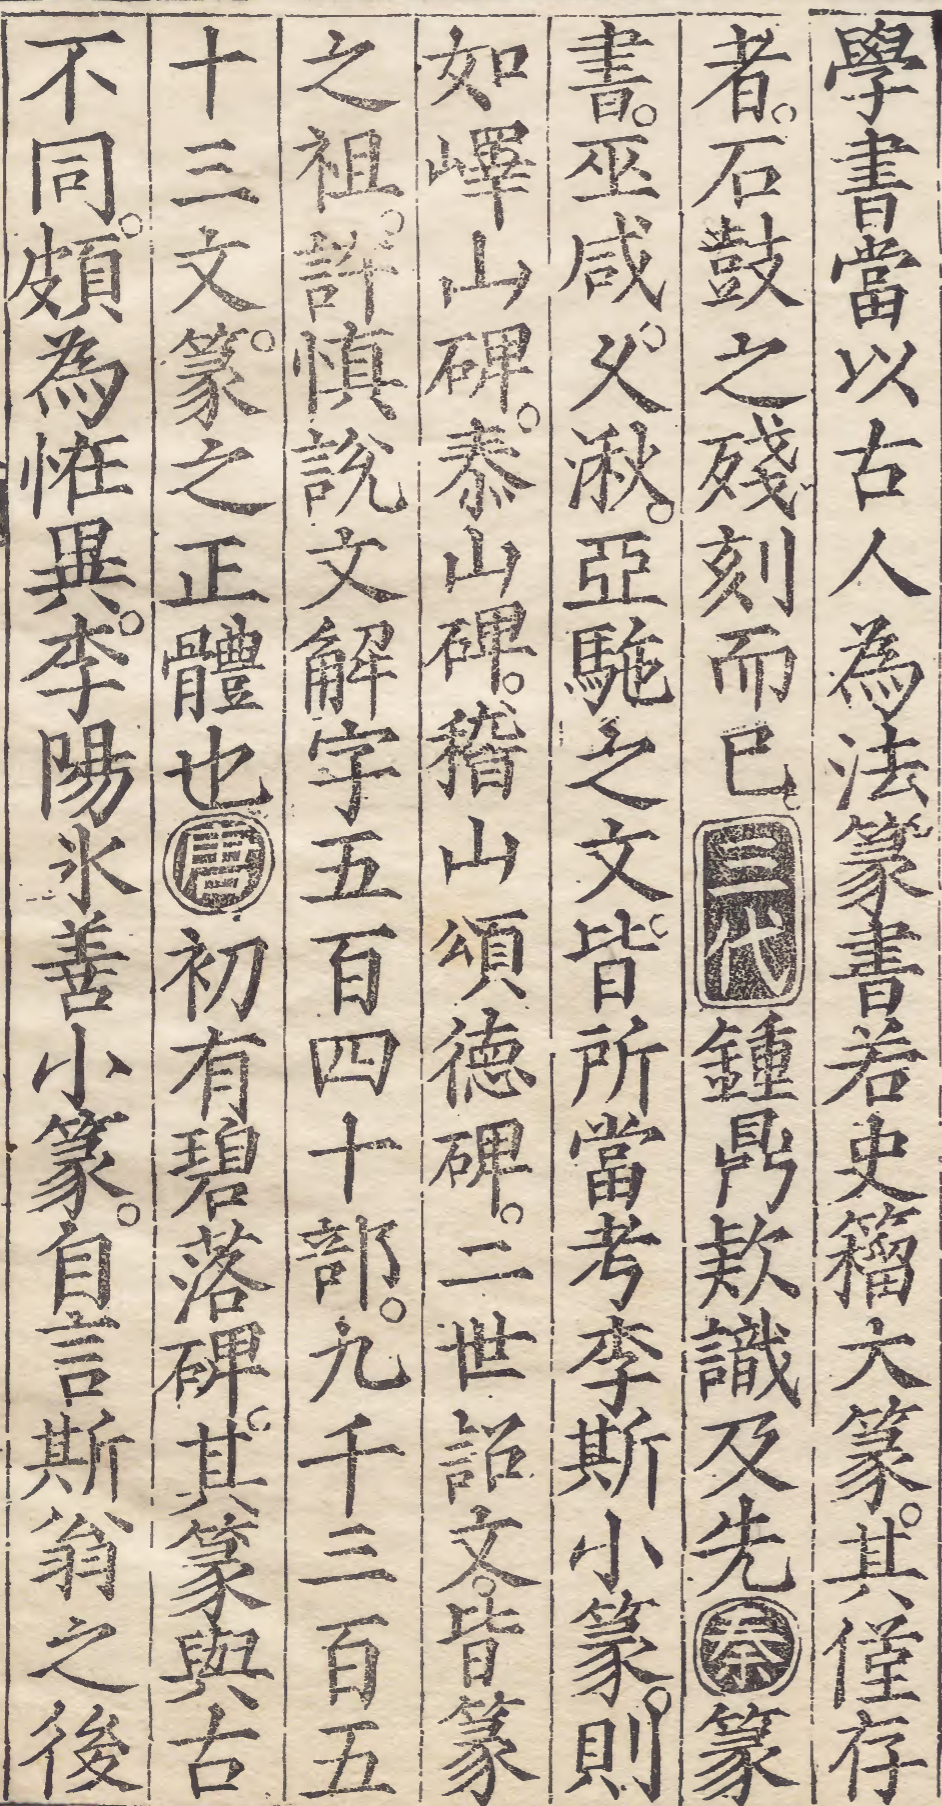 學書當以古人為法篆書若史籀大篆其僅存
者石鼓之殘刻而已三代鍾鼎款識及先秦篆
書巫咸乂湫亞駞之文皆所當考李斯小篆則
如嶧山碑泰山碑稽山頌德碑二世詔文皆篆
之祖許慎說文解字五百四十部九千三百五
十三文篆之正體也唐初有碧落碑其篆與古
不同頗為恠異李陽氷善小篆自言斯翁之後